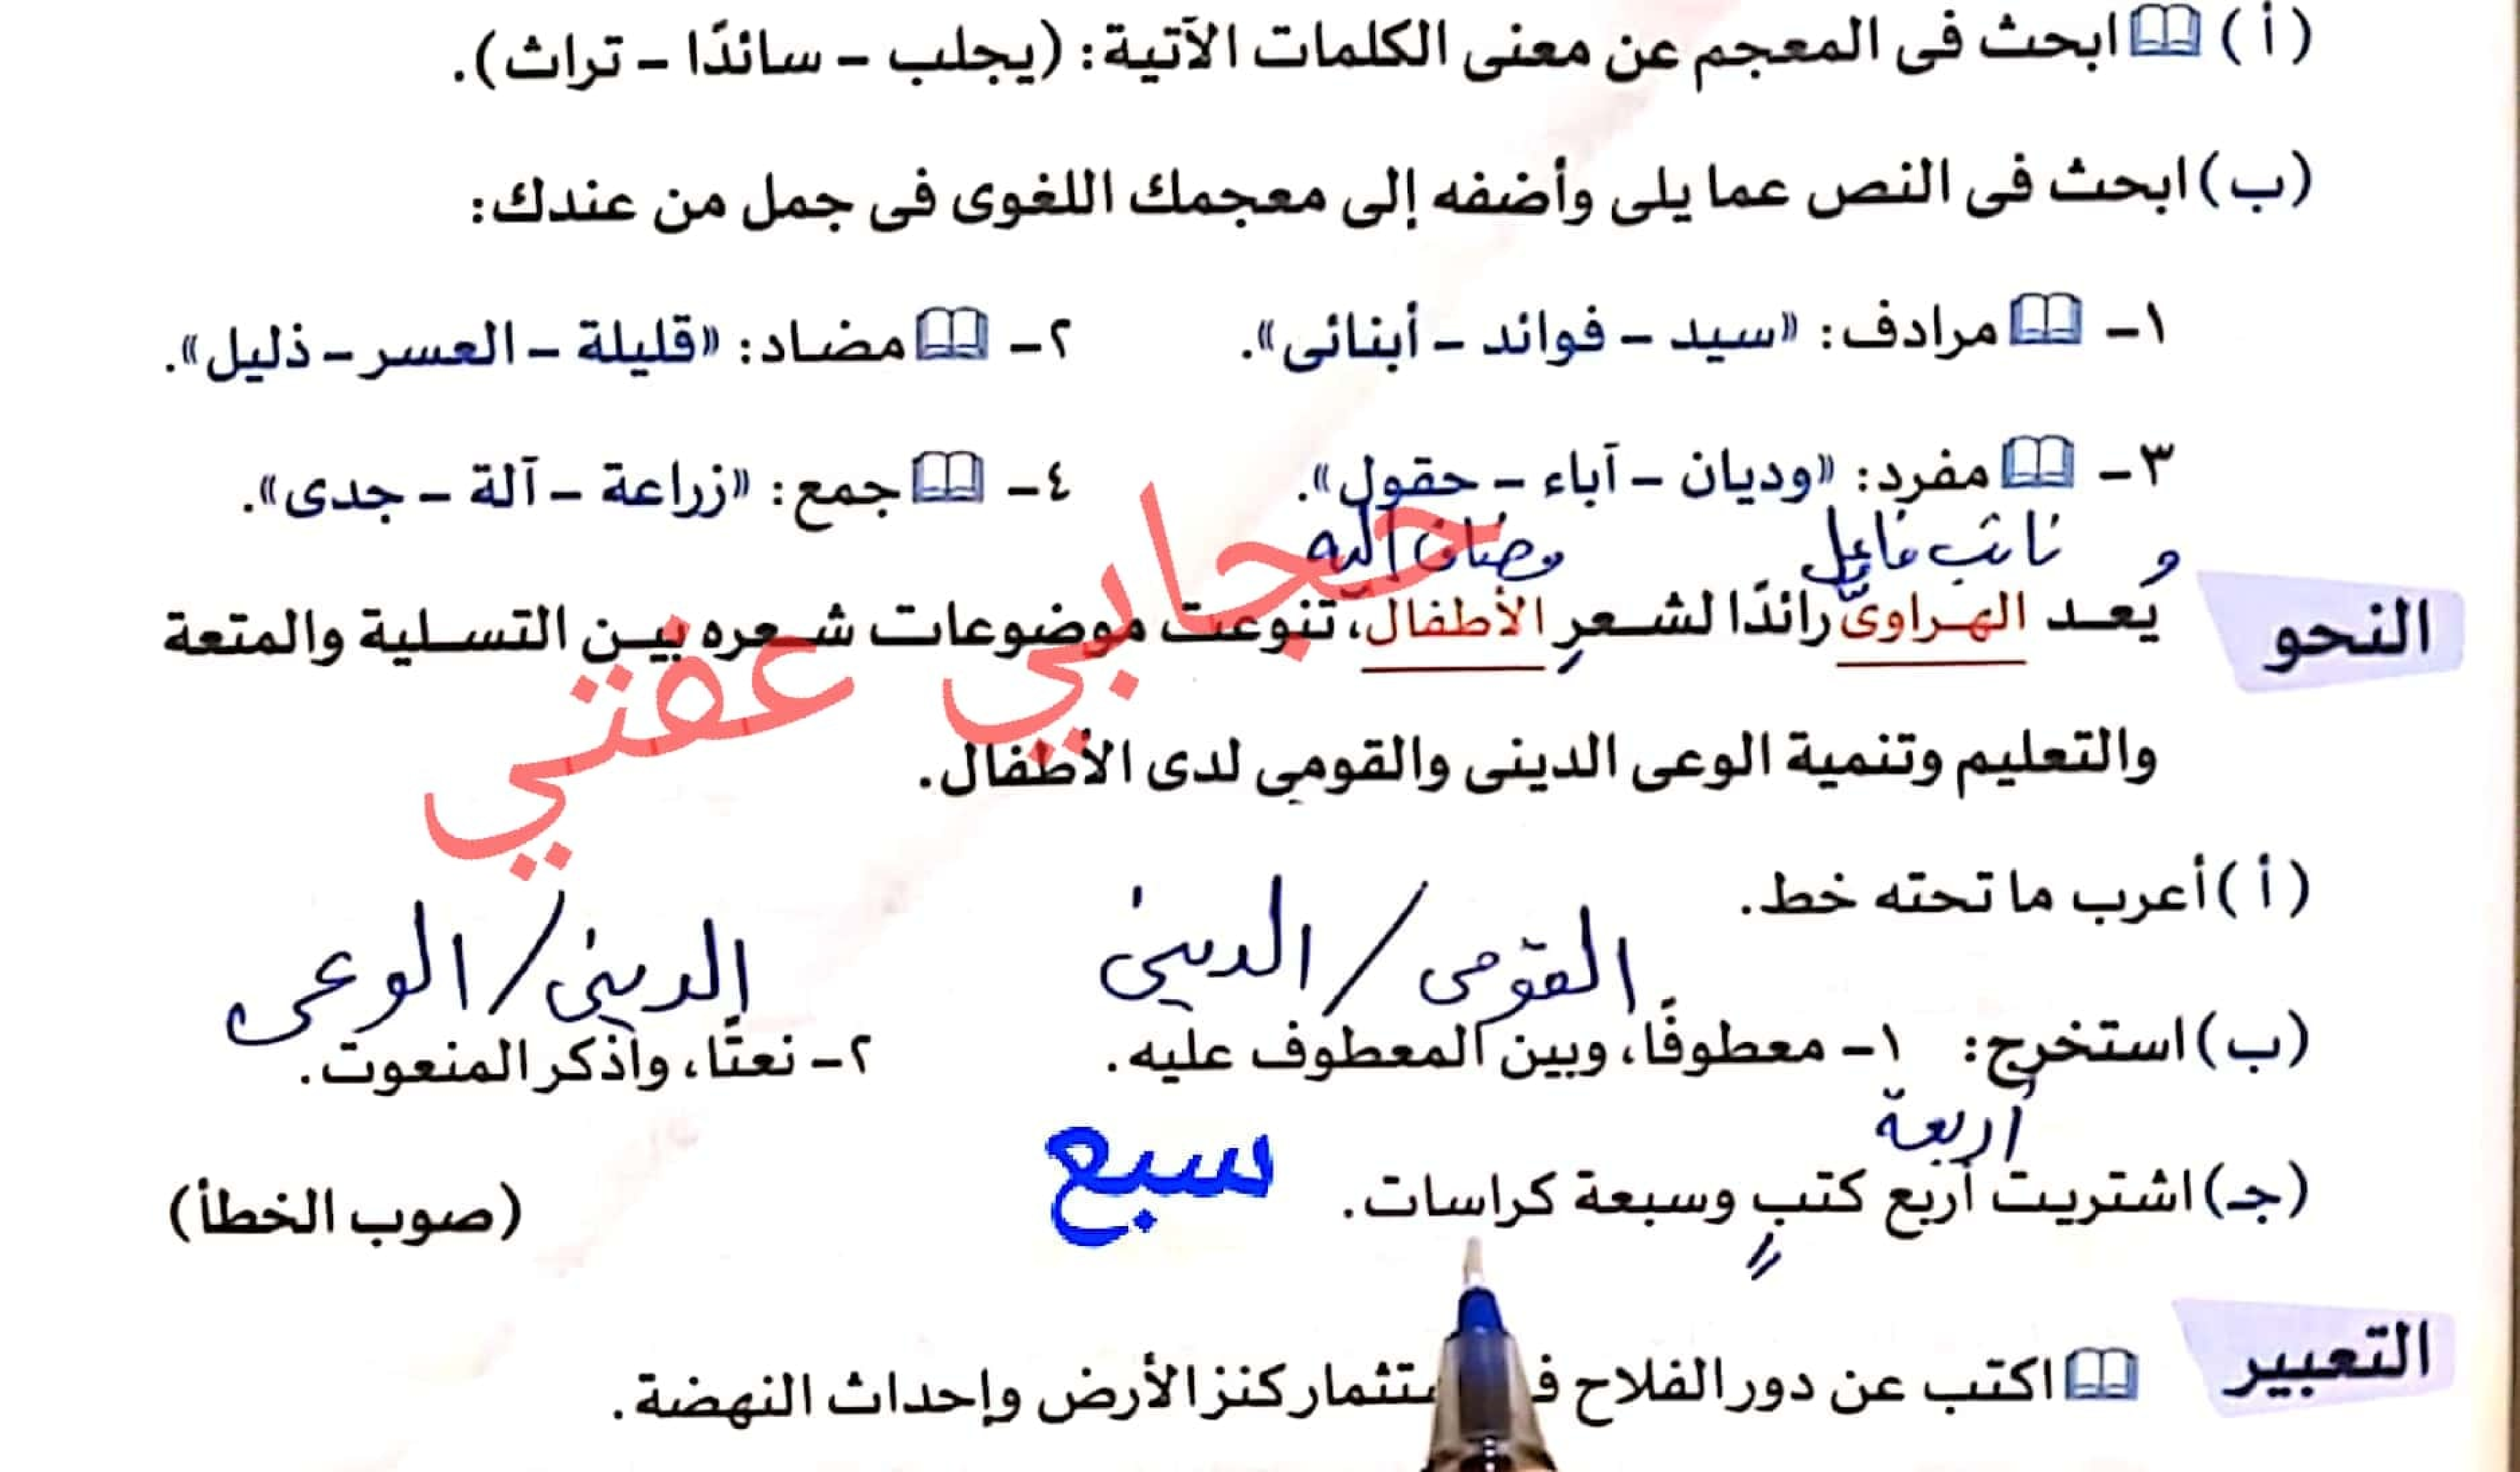 (أ) ابحث فى المعجم عن معنى الكلمات الآتية: (يجلب – سائدًا – تراث).
(ب) ابحث فى النص عما يلى وأضفه إلى معجمك اللغوى فى جمل من عندك:
١– مرادف: «سيد – فوائد – أبنائى». ٢– مضاد: «قليلة – العسر – ذليل».
٣– مفرد: «وديان – آباء – حقول». ٤– جمع: «زراعة – آلة – جدى».
نائب فاعل مضاف إليه
النحو يُعد الهراوىّ رائدًا لشعرِ الأطفال، تنوعت موضوعات شعره بين التسلية والمتعة
والتعليم وتنمية الوعى الدينى والقومى لدى الأطفال.
حجابي عفتي
(أ) أعرب ما تحته خط.
القومى / الدينى الدينى / الوعى
(ب) استخرج: ١– معطوفًا، وبين المعطوف عليه. ٢– نعتًا، واذكر المنعوت.
أربعة
سبع
(جـ) اشتريت أربع كتبٍ وسبعة كراسات. (صوب الخطأ)
التعبير اكتب عن دور الفلاح كنز الأرض وإحداث النهضة.